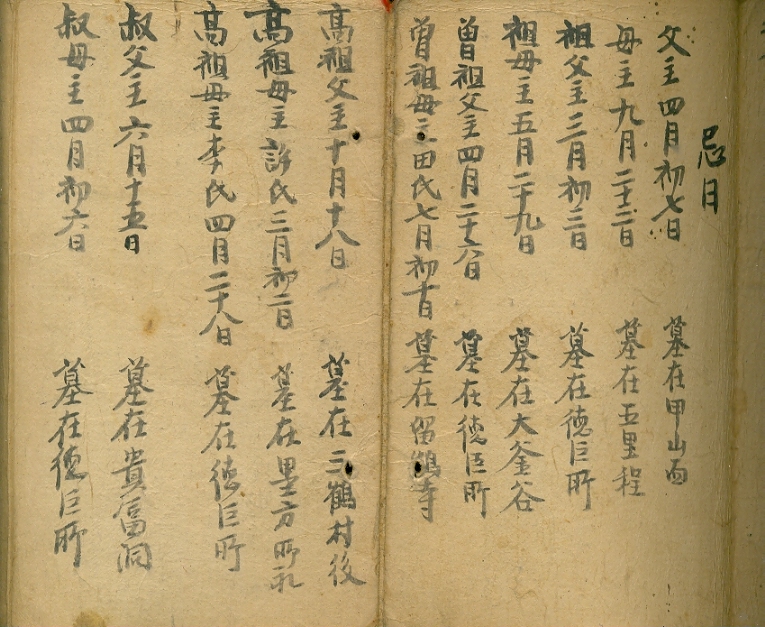 忌日
父主四月初七日 墓在甲山面
母主九月二十二日 墓在五里程
祖父主三月初三日 墓在德巨所
祖母主五月二十九日 墓在大釜谷
曾祖父主四月二十六日 墓在德巨所
曾祖母主田氏七月初十日 墓在留鶴寺
高祖父主十月十八日 墓在三鶴村後
高祖母主許氏三月初二日 墓在墨方所
高祖母主李氏四月二十八日 墓在德巨所
叔父主六月十五日 墓在貴富洞
叔母主四月初六日 墓在德巨所